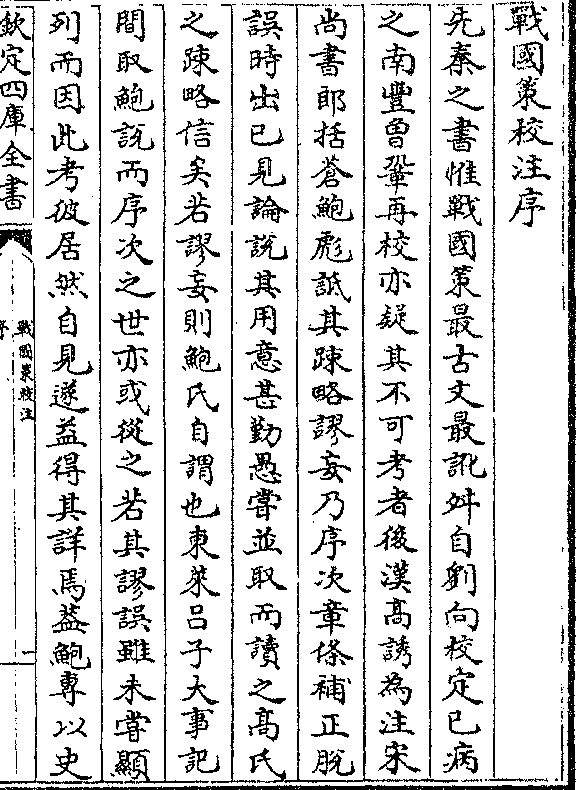 戰國策校注序
先秦之書惟戰國策最古文最訛舛自劉向校定已病
之南豐曾鞏再校亦疑其不可考者後漢高誘為注宋
尚書郎括蒼鮑彪詆其踈略謬妄乃序次章條補正脫
誤時出已見論說其用意甚勤愚嘗並取而讀之高氏
之踈略信矣若謬妄則鮑氏自謂也東萊呂子大事記
間取鮑說而序次之世亦或從之若其謬誤雖未嘗顯
列而因此考彼居然自見遂益得其詳焉葢鮑專以史
欽定四庫全書
戰國策校注
序
一